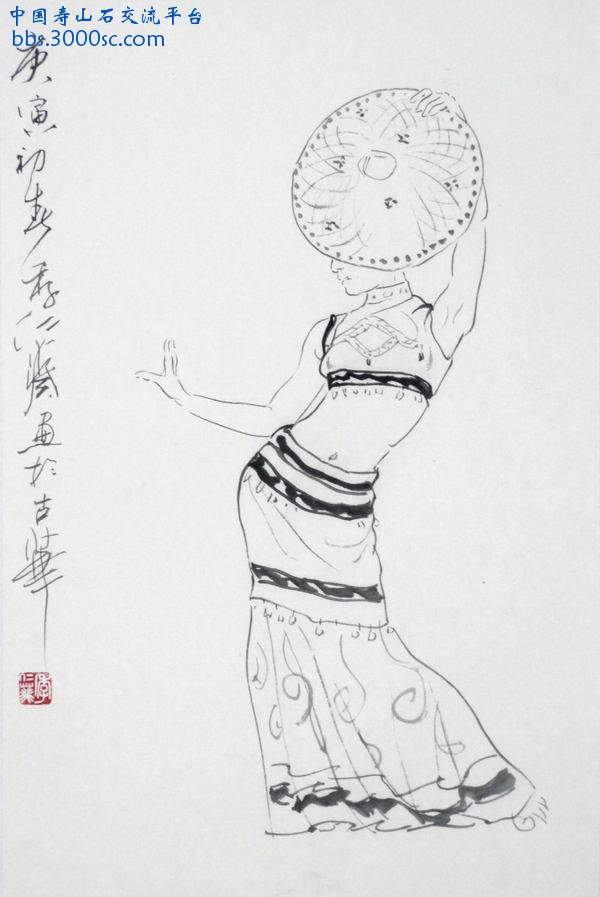 中国寿山石交流平台
bbs.3000sc.com
庚寅初春李仁画於古華
李仁